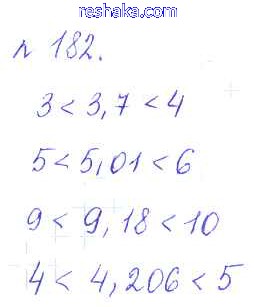 reshaka.com
n 182.
3 < 3,7 < 4
5 < 5,01 < 6
9 < 9,18 < 10
4 < 4,206 < 5